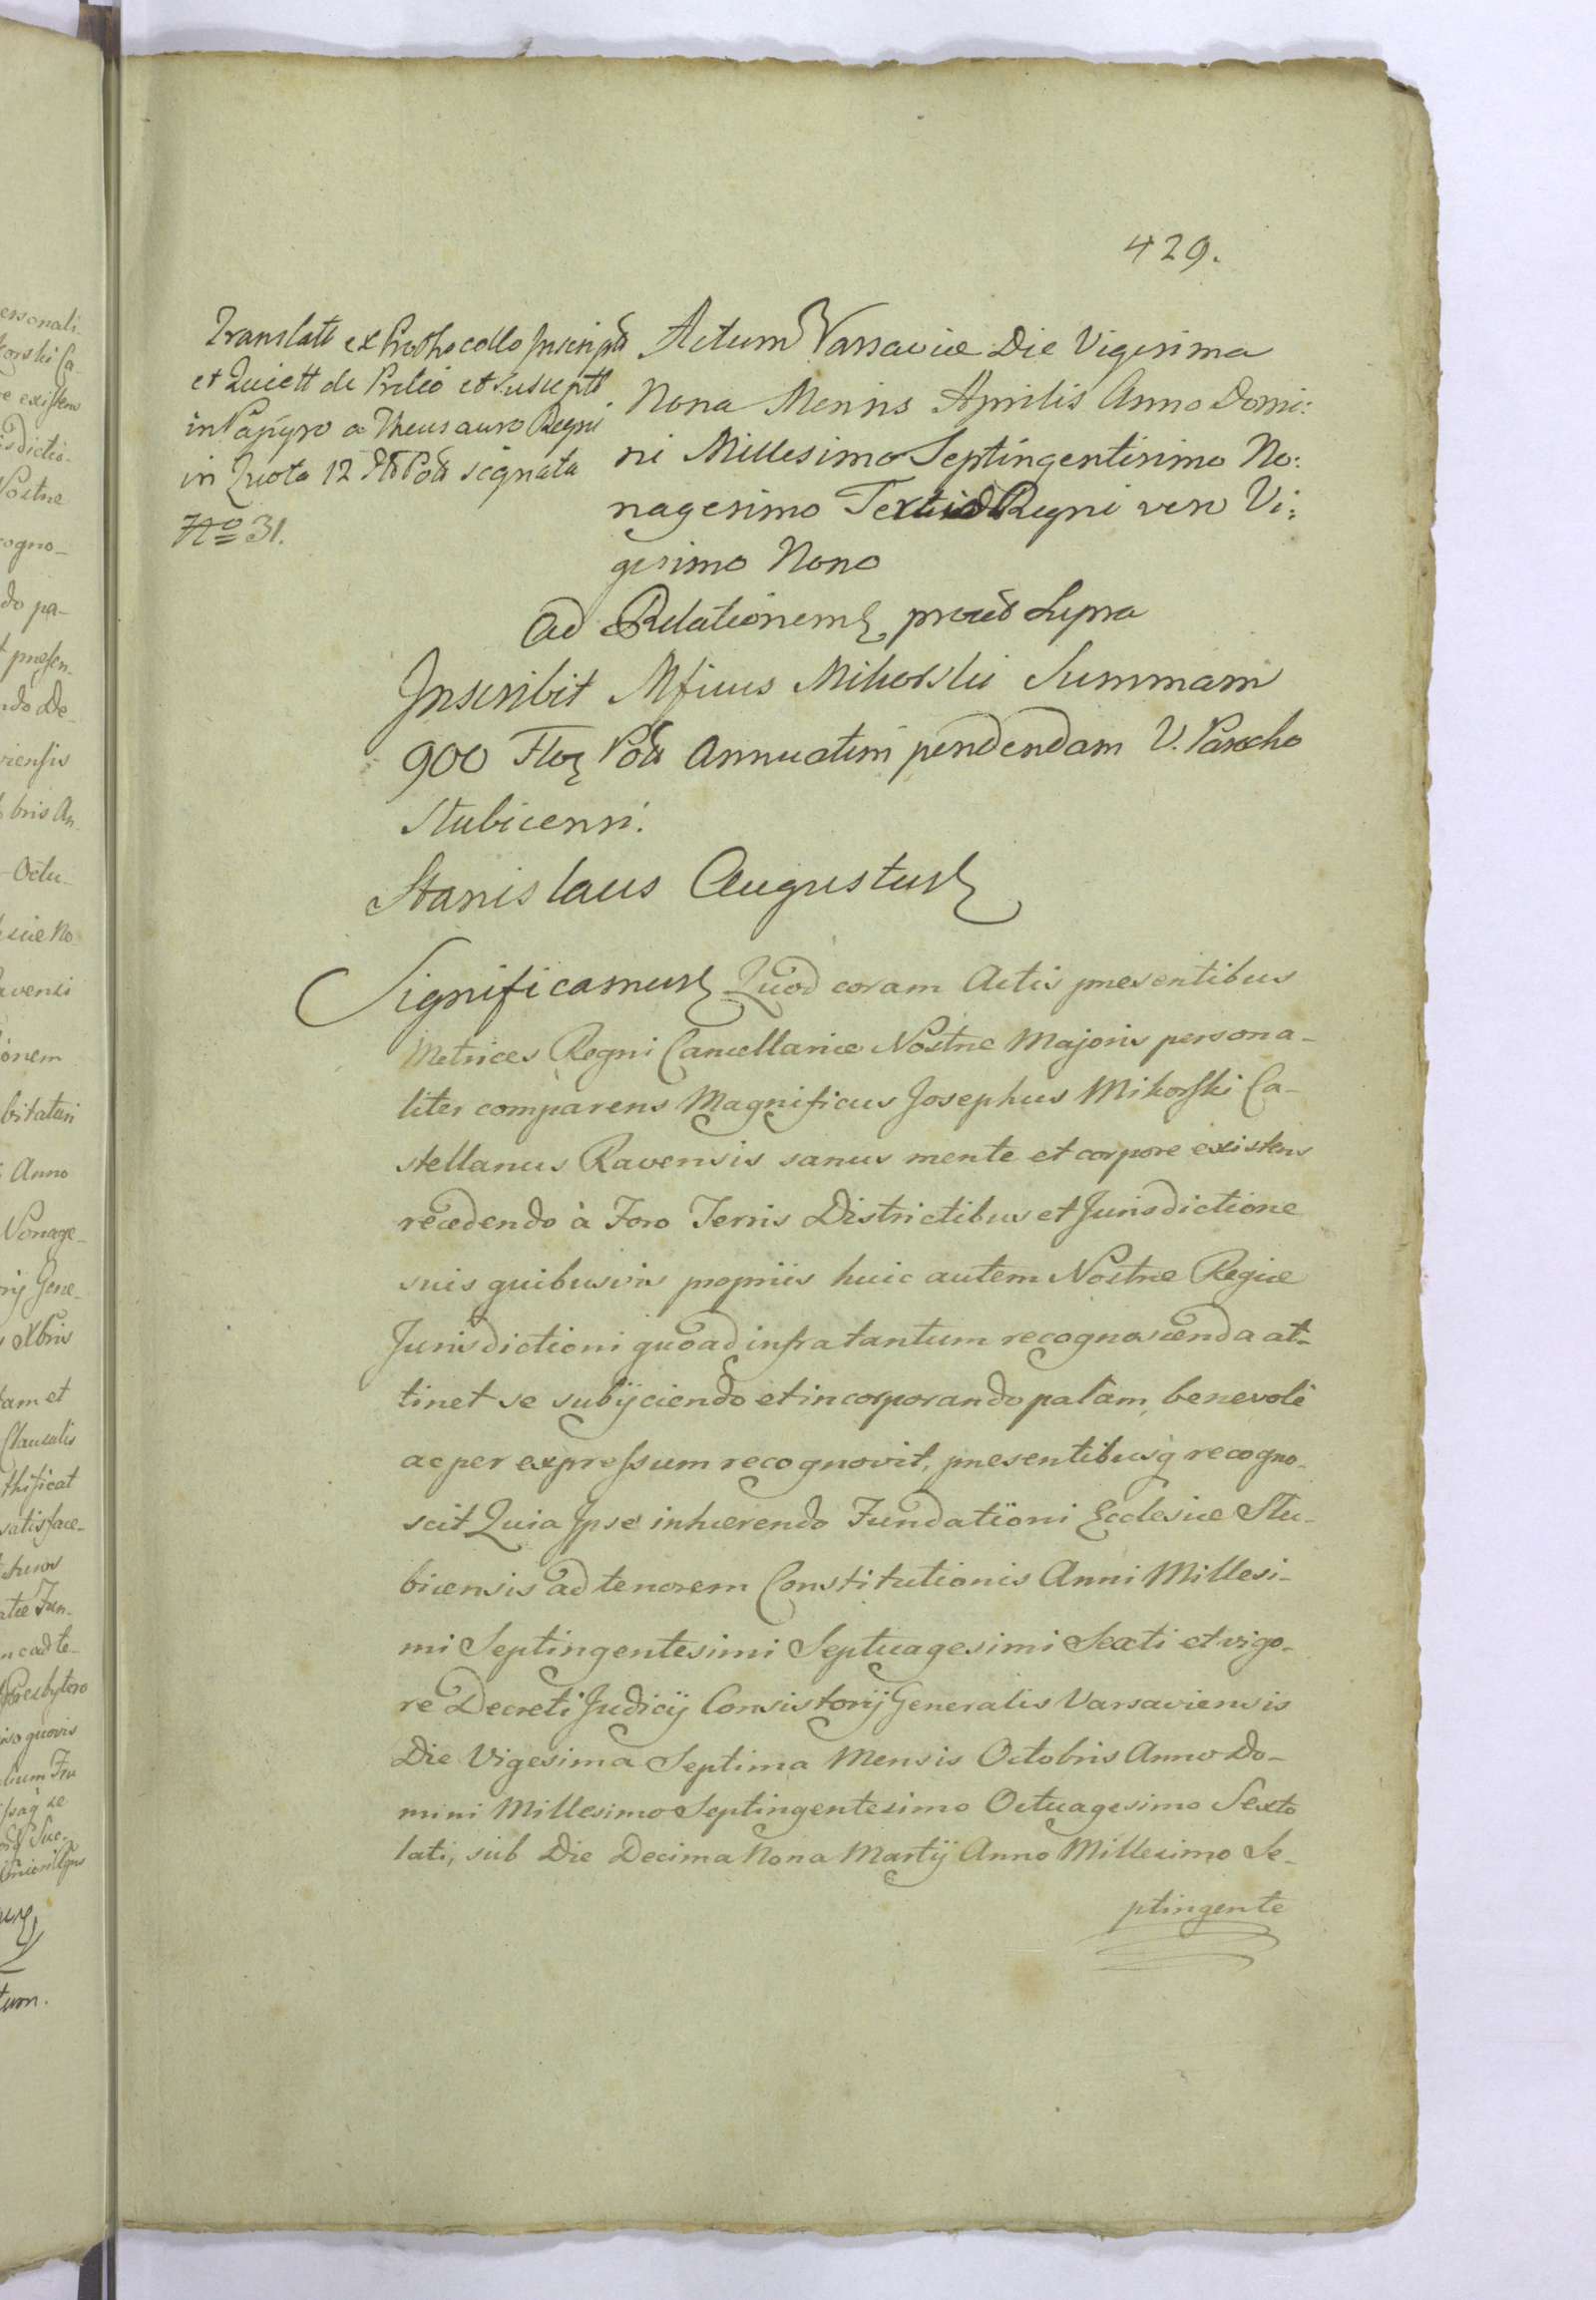 429.
Translatt ex Prothocollo Inscript
et Quiett de Prelio et Suscptt
in Papyro a Thesauro Regni
in Quota 12 Fl Pol signata
No 31.
Actum Varsaviæ Die Vigesima
Nona Mensis Aprilis Anno Domi:
ni Millesimo Septingentesimo No:
nagesimo Tertio Regni vero Vi:
gesimo Nono
Ad Relationem prout Supra
Inscribit Mficus Mikorski Summam
900 Flor Pol Annuatim pendendam V. Parocho
Stubicensi.
Stanislaus Augustus
Significamus Quod coram Actis præsentibus
Metrices Regni Cancellariæ Nostræ Majoris persona-
liter comparens Magnificus Josephus Mikorski Ca-
stellanus Ravensis sanus mente et corpore existens
recedendo à Foro Terris Districtibus et Jurisdictione
suis quibusvis propriis huic autem Nostræ Regiæ
Jurisdictioni quoad infra tantum recognoscenda at-
tinet se subijciendo et incorporando palàm, benevolè
ac per expressum recognovit, præsentibusq recogno-
scit Quia Ipse inhærendo Fundationi Ecclesiæ Stu-
bicensis ad tenorem Constitutionis Anni Millesi-
mi Septingentesimi Septuagesimi Sexti et vigo-
re Decreti Judicij Consistorij Generalis Varsaviensis
Die Vigesima Septima Mensis Octobris Anno Do-
mini Millesimo Septingentesimo Octuagesimo Sexto
lati, sub Die Decima Nona Martij Anno Millesimo Se-
ptingente